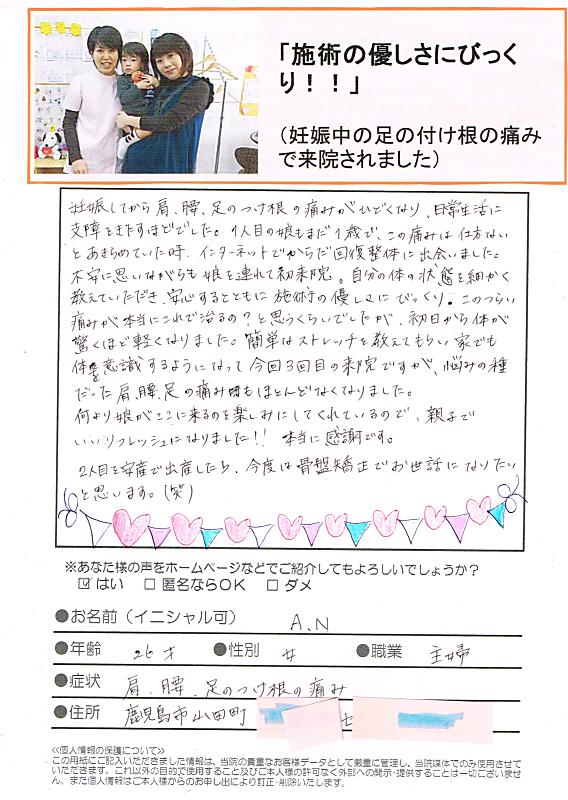 「施術の優しさにびっく
り！！」
（妊娠中の足の付け根の痛み
で来院されました）
妊娠してから肩、腰、足のつけ根の痛みがひどくなり、日常生活に
支障をきたすほどでした。1人目の娘もまだ1歳で、この痛みは仕方ない
とあきらめていた時、インターネットでからだ回復整体に出会いました。
不安に思いながらも娘を連れて初来院。自分の体の状態を細かく
教えていただき、安心するとともに施術の優しさにびっくり。このつらい
痛みが本当にこれで治るの？と思うくらいでしたが、初日から体が
驚くほど軽くなりました。簡単なストレッチを教えてもらい家でも
体を意識するようになって今回3回目の来院ですが、悩みの種
だった肩、腰、足の痛みもほとんどなくなりました。
何より娘がここに来るのを楽しみにしてくれているので、親子で
いいリフレッシュになりました！！本当に感謝です。
2人目を安産で出産したら、今度は骨盤矯正でお世話になりたい
と思います。（笑）
※あなた様の声をホームページなどでご紹介してもよろしいでしょうか？
☑ はい　□ 匿名ならOK　□ ダメ
●お名前（イニシャル可）　A.N
●年齢　26才　●性別　女　●職業　主婦
●症状　肩、腰、足のつけ根の痛み
●住所　鹿児島市山田町
<<個人情報の保護について>>
この用紙にご記入いただきました情報は、当院の貴重なお客様データとして厳重に管理し、当院媒体でのみ使用させて
いただきます。これ以外の目的で使用すること及びご本人様の許可なく外部への開示・提供することは一切ございませ
ん。また個人情報はご本人様からのお申し出により訂正・削除いたします。